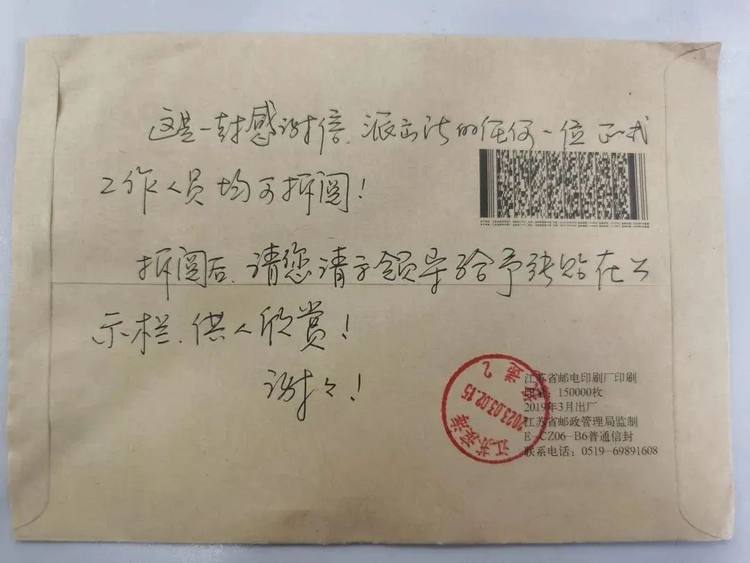 这是一封感谢信、派出所的任何一位
工作人员均可拆阅！
拆阅后、请您请示领导给予张贴在公
示栏、供人欣赏！
谢々！
2023.03.02.15
江苏
江苏省邮电印刷厂印刷
150000枚
2019年3月出厂
江苏省邮政管理局监制
CZ06-B6普通信封
联系电话：0519-69891608